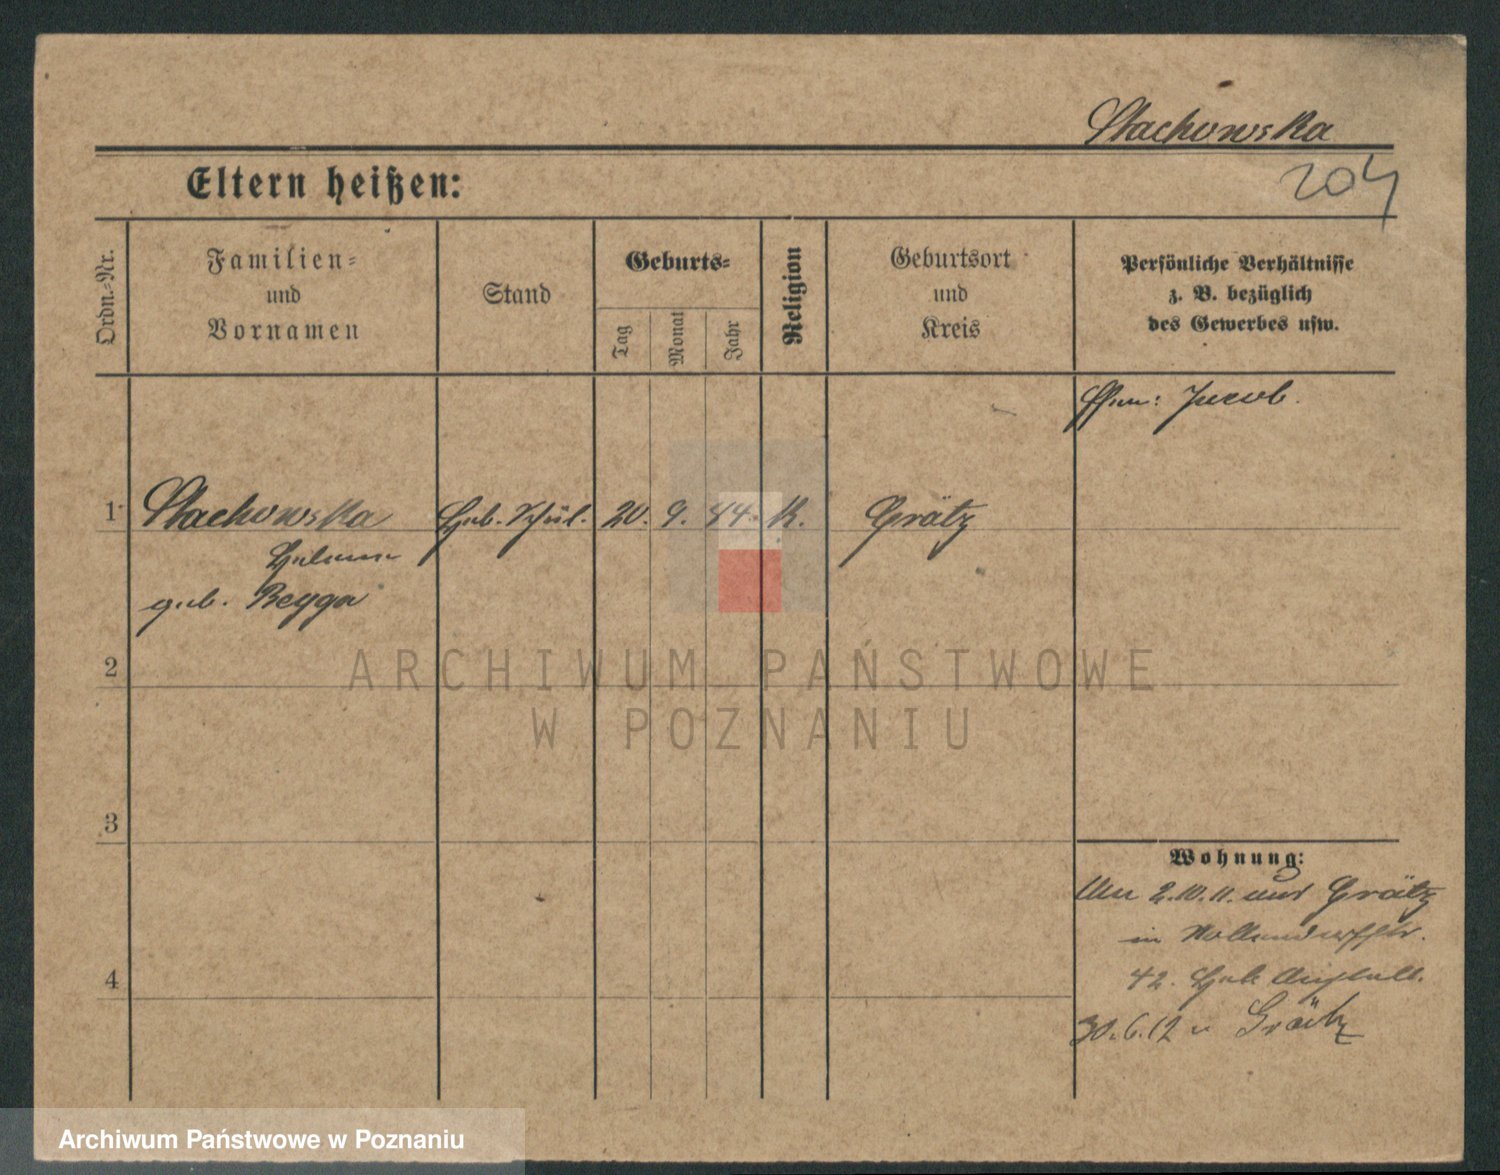 Stachowska
204
Eltern heißen:
Ordn.-Nr.
Familien-
und
Vornamen
Stand
Geburts-
Tag
Monat
Jahr
Religion
Geburtsort
und
Kreis
Persönliche Verhältnisse
z. B. bezüglich
des Gewerbes usw.
Jacob.
1 Stachowska Heb. Schül. 20. 9. 44. K. Grätz
Helene
geb. Reyga
2
3
4
ARCHIWUM PAŃSTWOWE
W POZNANIU
Wohnung:
2.10.11. aus Grätz
in
42. Heb. Anstalt.
30.6.12 n Grätz
Archiwum Państwowe w Poznaniu